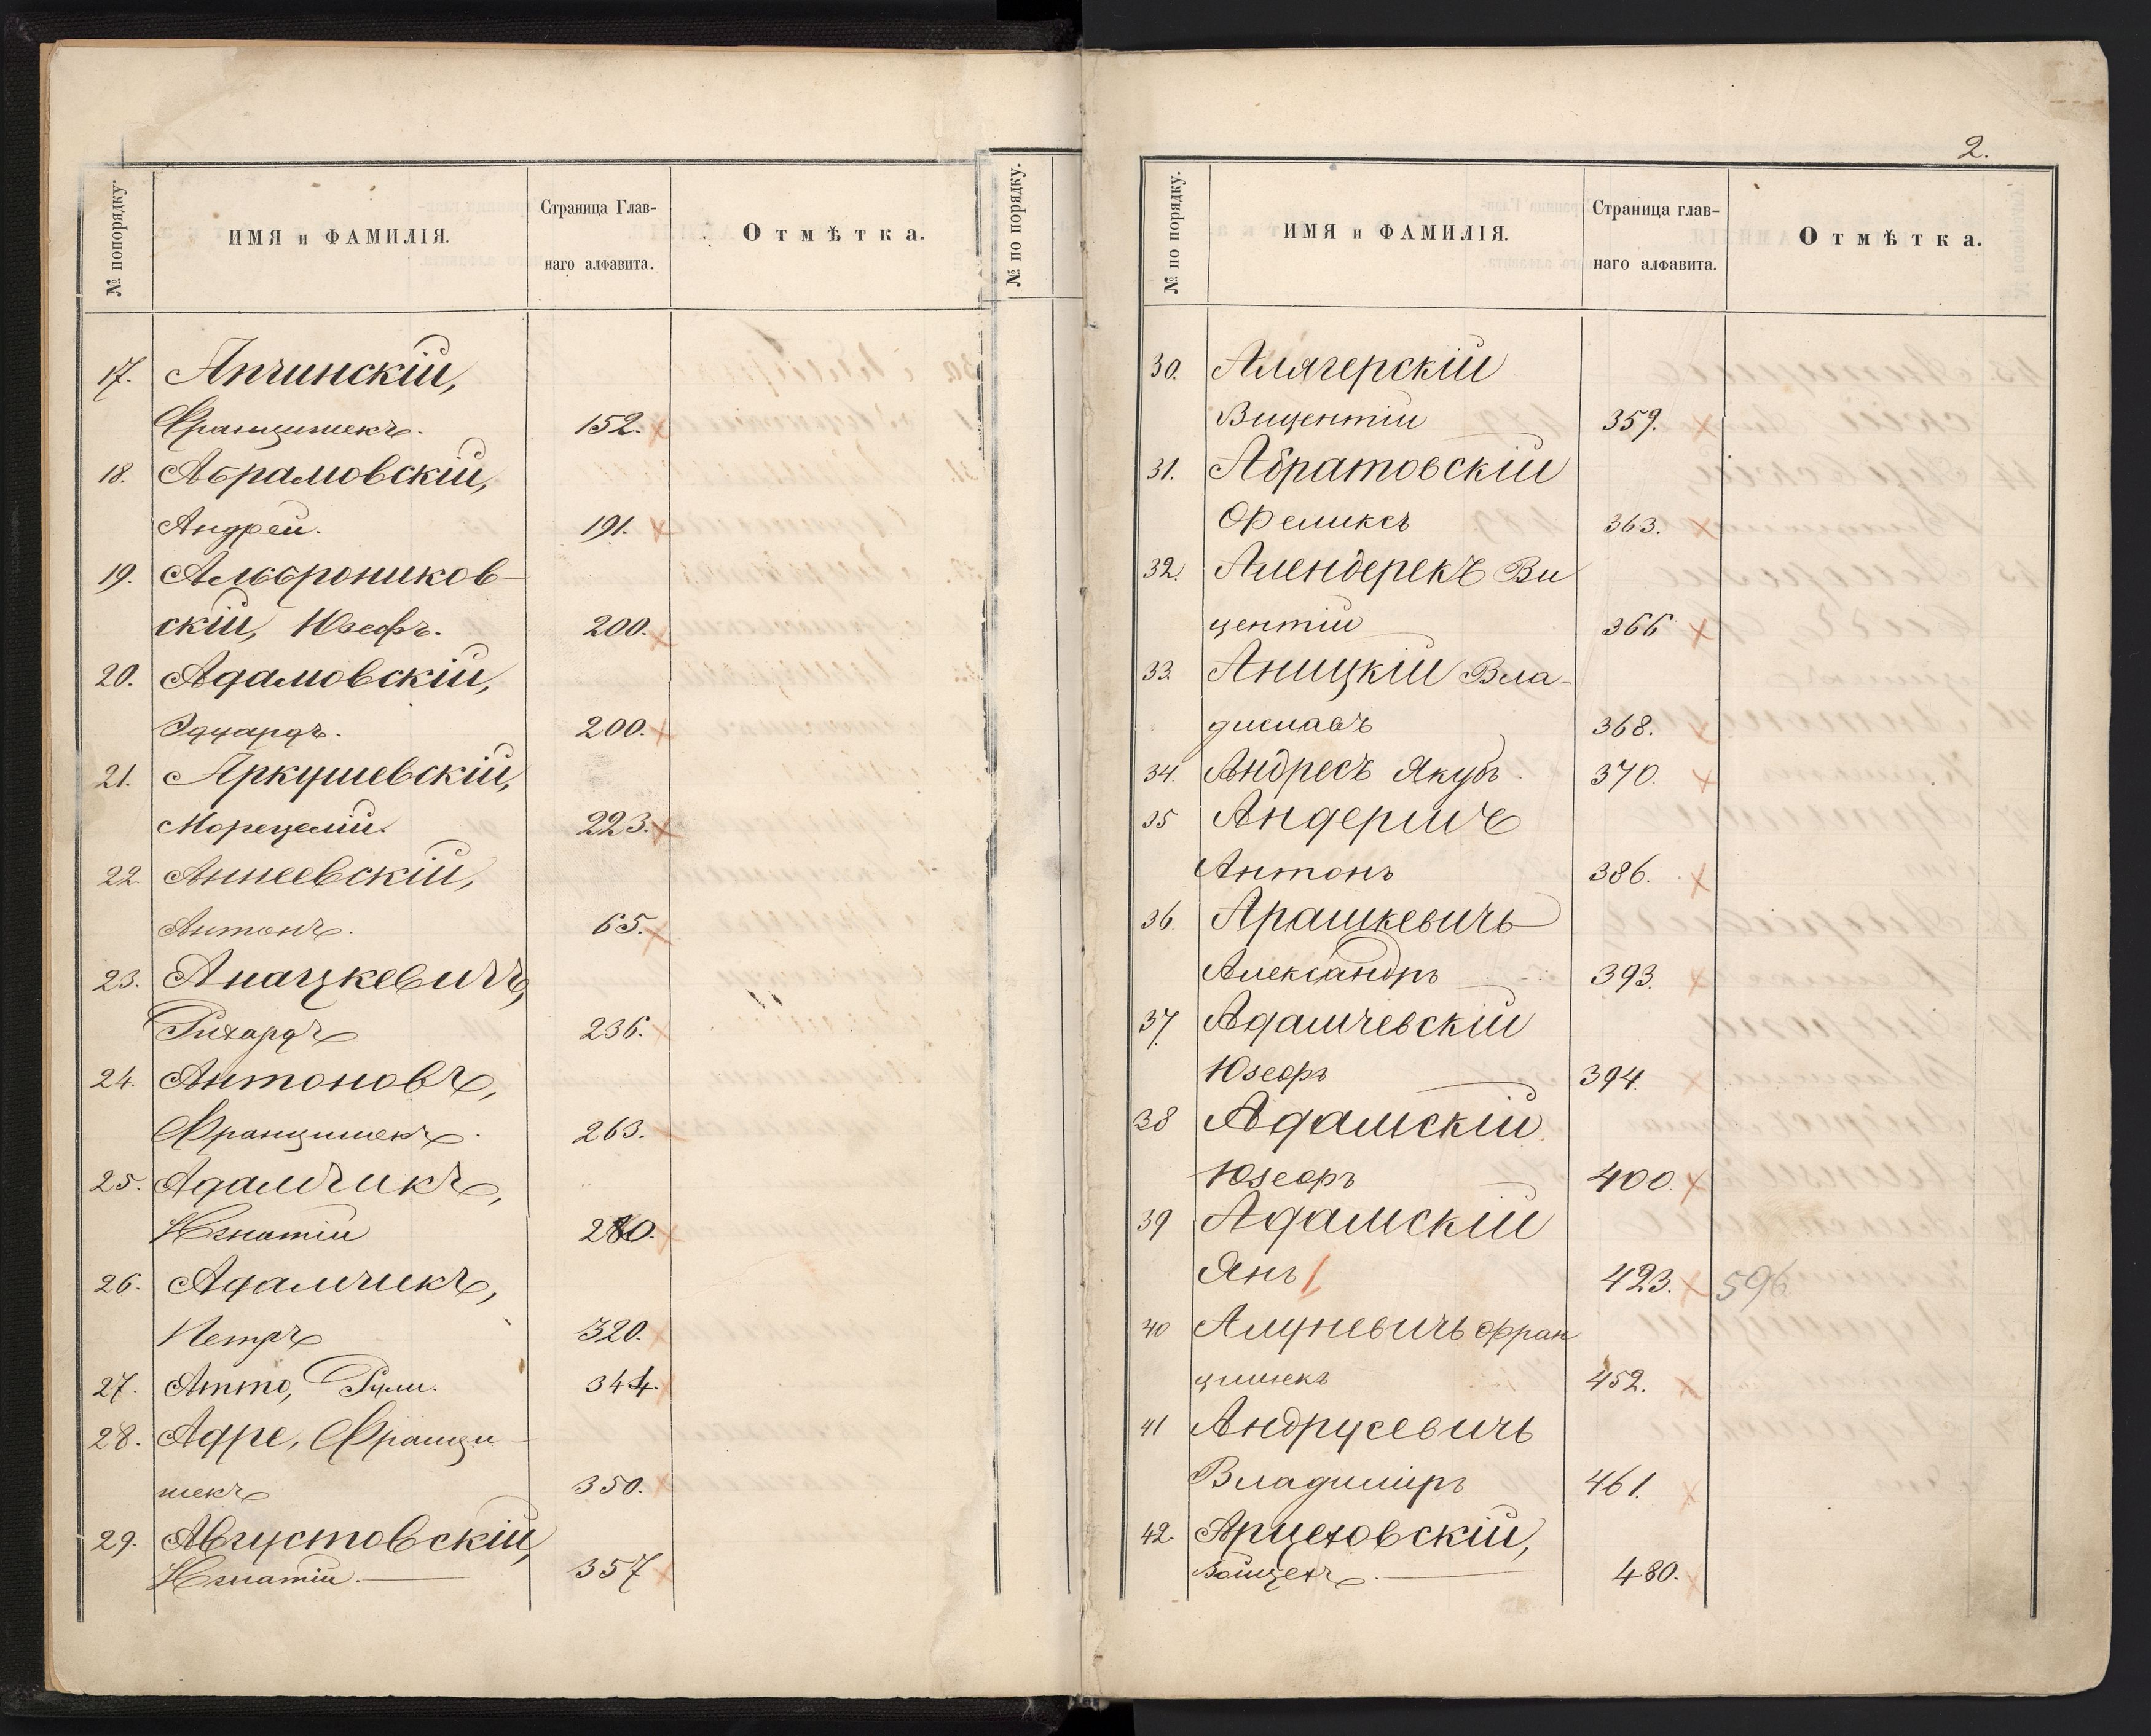 № попорядку.
ИМЯ и ФАМИЛІЯ.
Страница Глав-
наго алфавита.
Отмѣтка.
17. Апчинскій,
Францишекъ. 152. x
18. Абрамовскій,
Андрей. 191. x
19. Альброников-
скій, Юзефъ. 200. x
20. Адамовскій,
Эдуардъ. 200. x
21. Аркушевскій,
223. x
22. Аннеевскій,
Антонъ. 65. x
23. Анацкевичъ,
Рихардъ 236. x
24. Антоновъ,
Францишекъ. 263. x
25. Адамчикъ,
Игнатій 280. x
26. Адамчикъ,
Петръ 320. x
27. Атто, 344. x
28. Адре, Франци-
шекъ 350. x
29. Августовскій,
Игнатій. 357 x
№ по порядку.
2.
№ по порядку.
ИМЯ и ФАМИЛІЯ.
Страница глав-
наго алфавита.
Отмѣтка.
30. Алягерскій
Вицентій 359. x
31. Абратовскій
Феликсъ 363. x
32. Алендерекъ Ви
центій 366 x
33. Аницкій Вла-
диславъ 368. x
34. Андресъ Якубъ 370. x
35 Андершъ
Антонъ 386. x
36. Арашкевичъ
Александръ 393. x
37. Адамчевскій
Юзефъ 394.
38 Адамскій
Юзефъ 400. x
39 Адамскій
Янъ 423. x 596
40 Фран
цишекъ 452. x
41 Андрусевичъ
Владиміръ 461. x
42. Арцеховскій,
Войцехъ. 480. x